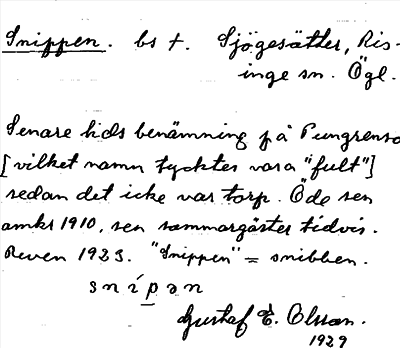 Snippen. bs t. Sjögesätter, Ris-
inge sn. Ögl.
Senare tids benämning på Pungrenso
[vilket namn tycktes vara "fult"]
sedan det icke var torp. Öde sen
omkr 1910, sen sommargäster tidvis.
Reven 1923. "Snippen" = snibben.
snípən
Gustaf E. Olsson.
1929